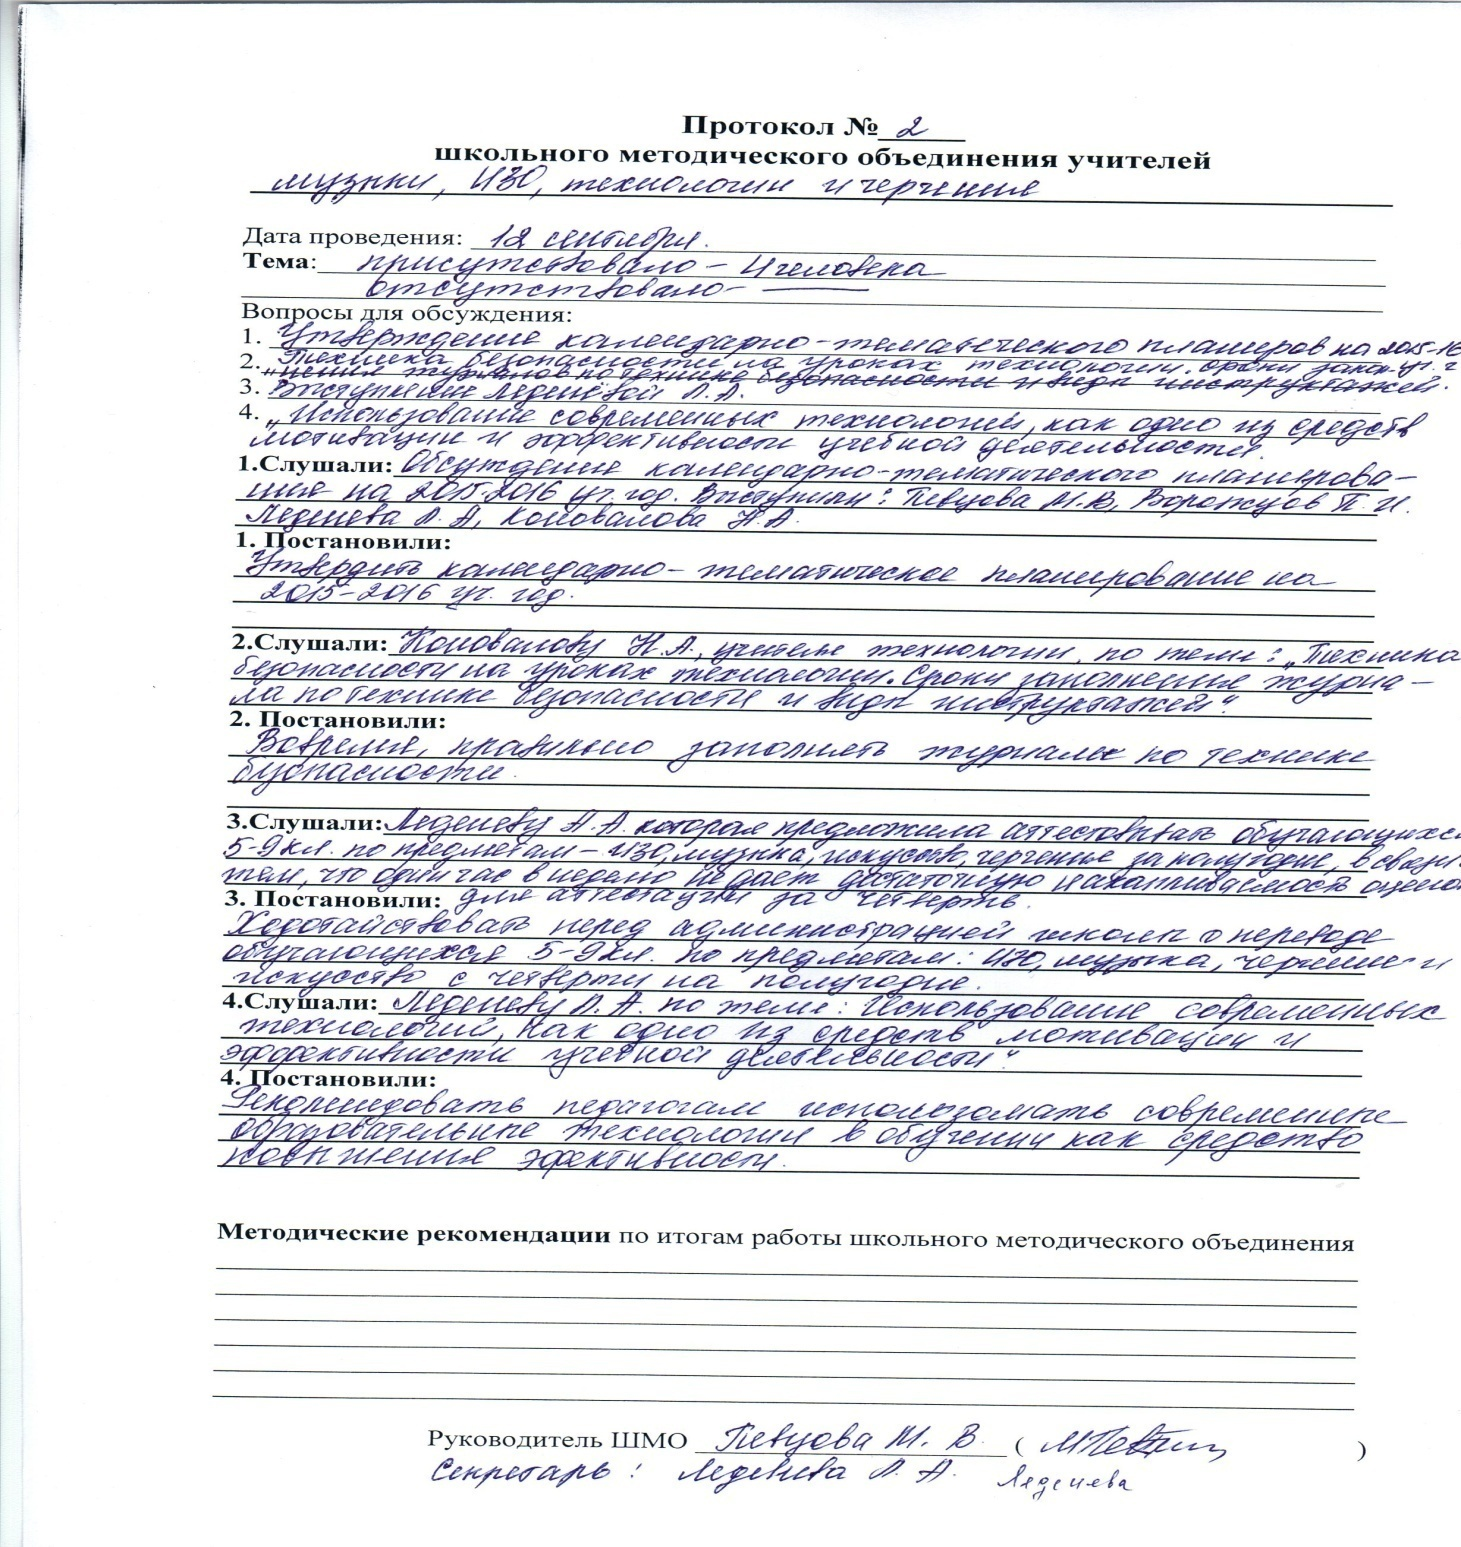 Протокол № 2
школьного методического объединения учителей
музыки, ИЗО, технологии и черчения
Дата проведения: 12 сентября.
Тема: присутствовало – 4 человека
отсутствовало –
Вопросы для обсуждения:
1. Утверждение календарно-тематического планиров на 2015-16
2. Техника безопасности на уроках технологии. Сроки запол-
нения журналов по технике безопасности и виды инструктажей.
3. Выступление Леденёвой Л.А.
4. „Использование современных технологий, как одно из средств
мотивации и эффективности учебной деятельности.
1.Слушали: Обсуждение календарно-тематического планирова-
ния на 2015-2016 уч. год. Выступили: Певцова М.В, Воронцов П.И.
Леденева Л.А, Коновалова Н.А.
1. Постановили:
Утвердить календарно-тематическое планирование на
2015-2016 уч. год.
2.Слушали: Коновалову Н.А., учителя технологии, по теме: „Техника
безопасности на уроках технологии. Сроки заполнения журна-
ла по технике безопасности и виды инструктажей".
2. Постановили:
Вовремя, правильно заполнять журналы по технике
безопасности.
3.Слушали: Леденеву Л.А. которая предложила аттестовывать обучающихся
5-9 кл. по предметам – ИЗО, музыка, искусство, черчение за полугодие, в связи
тем, что один час в неделю не дает достаточную накапливаемость оценок
3. Постановили: для аттестации за четверть.
Ходотайствовать перед администрацией школы о переводе
обучающихся 5-9 кл. по предметам: ИЗО, музыка, черчение и
искусство с четверти на полугодие.
4.Слушали: Леденеву Л.А. по теме: Использование современных
технологий, как одно из средств мотивации и
эффективности учебной деятельности"
4. Постановили:
Рекомендовать педагогам использовать современные
образовательные технологии в обучении как средство
повышения эфективности.
Методические рекомендации по итогам работы школьного методического объединения
Руководитель ШМО Певцова М. В. ( )
Секретарь: Леденева Л. А. Леденева